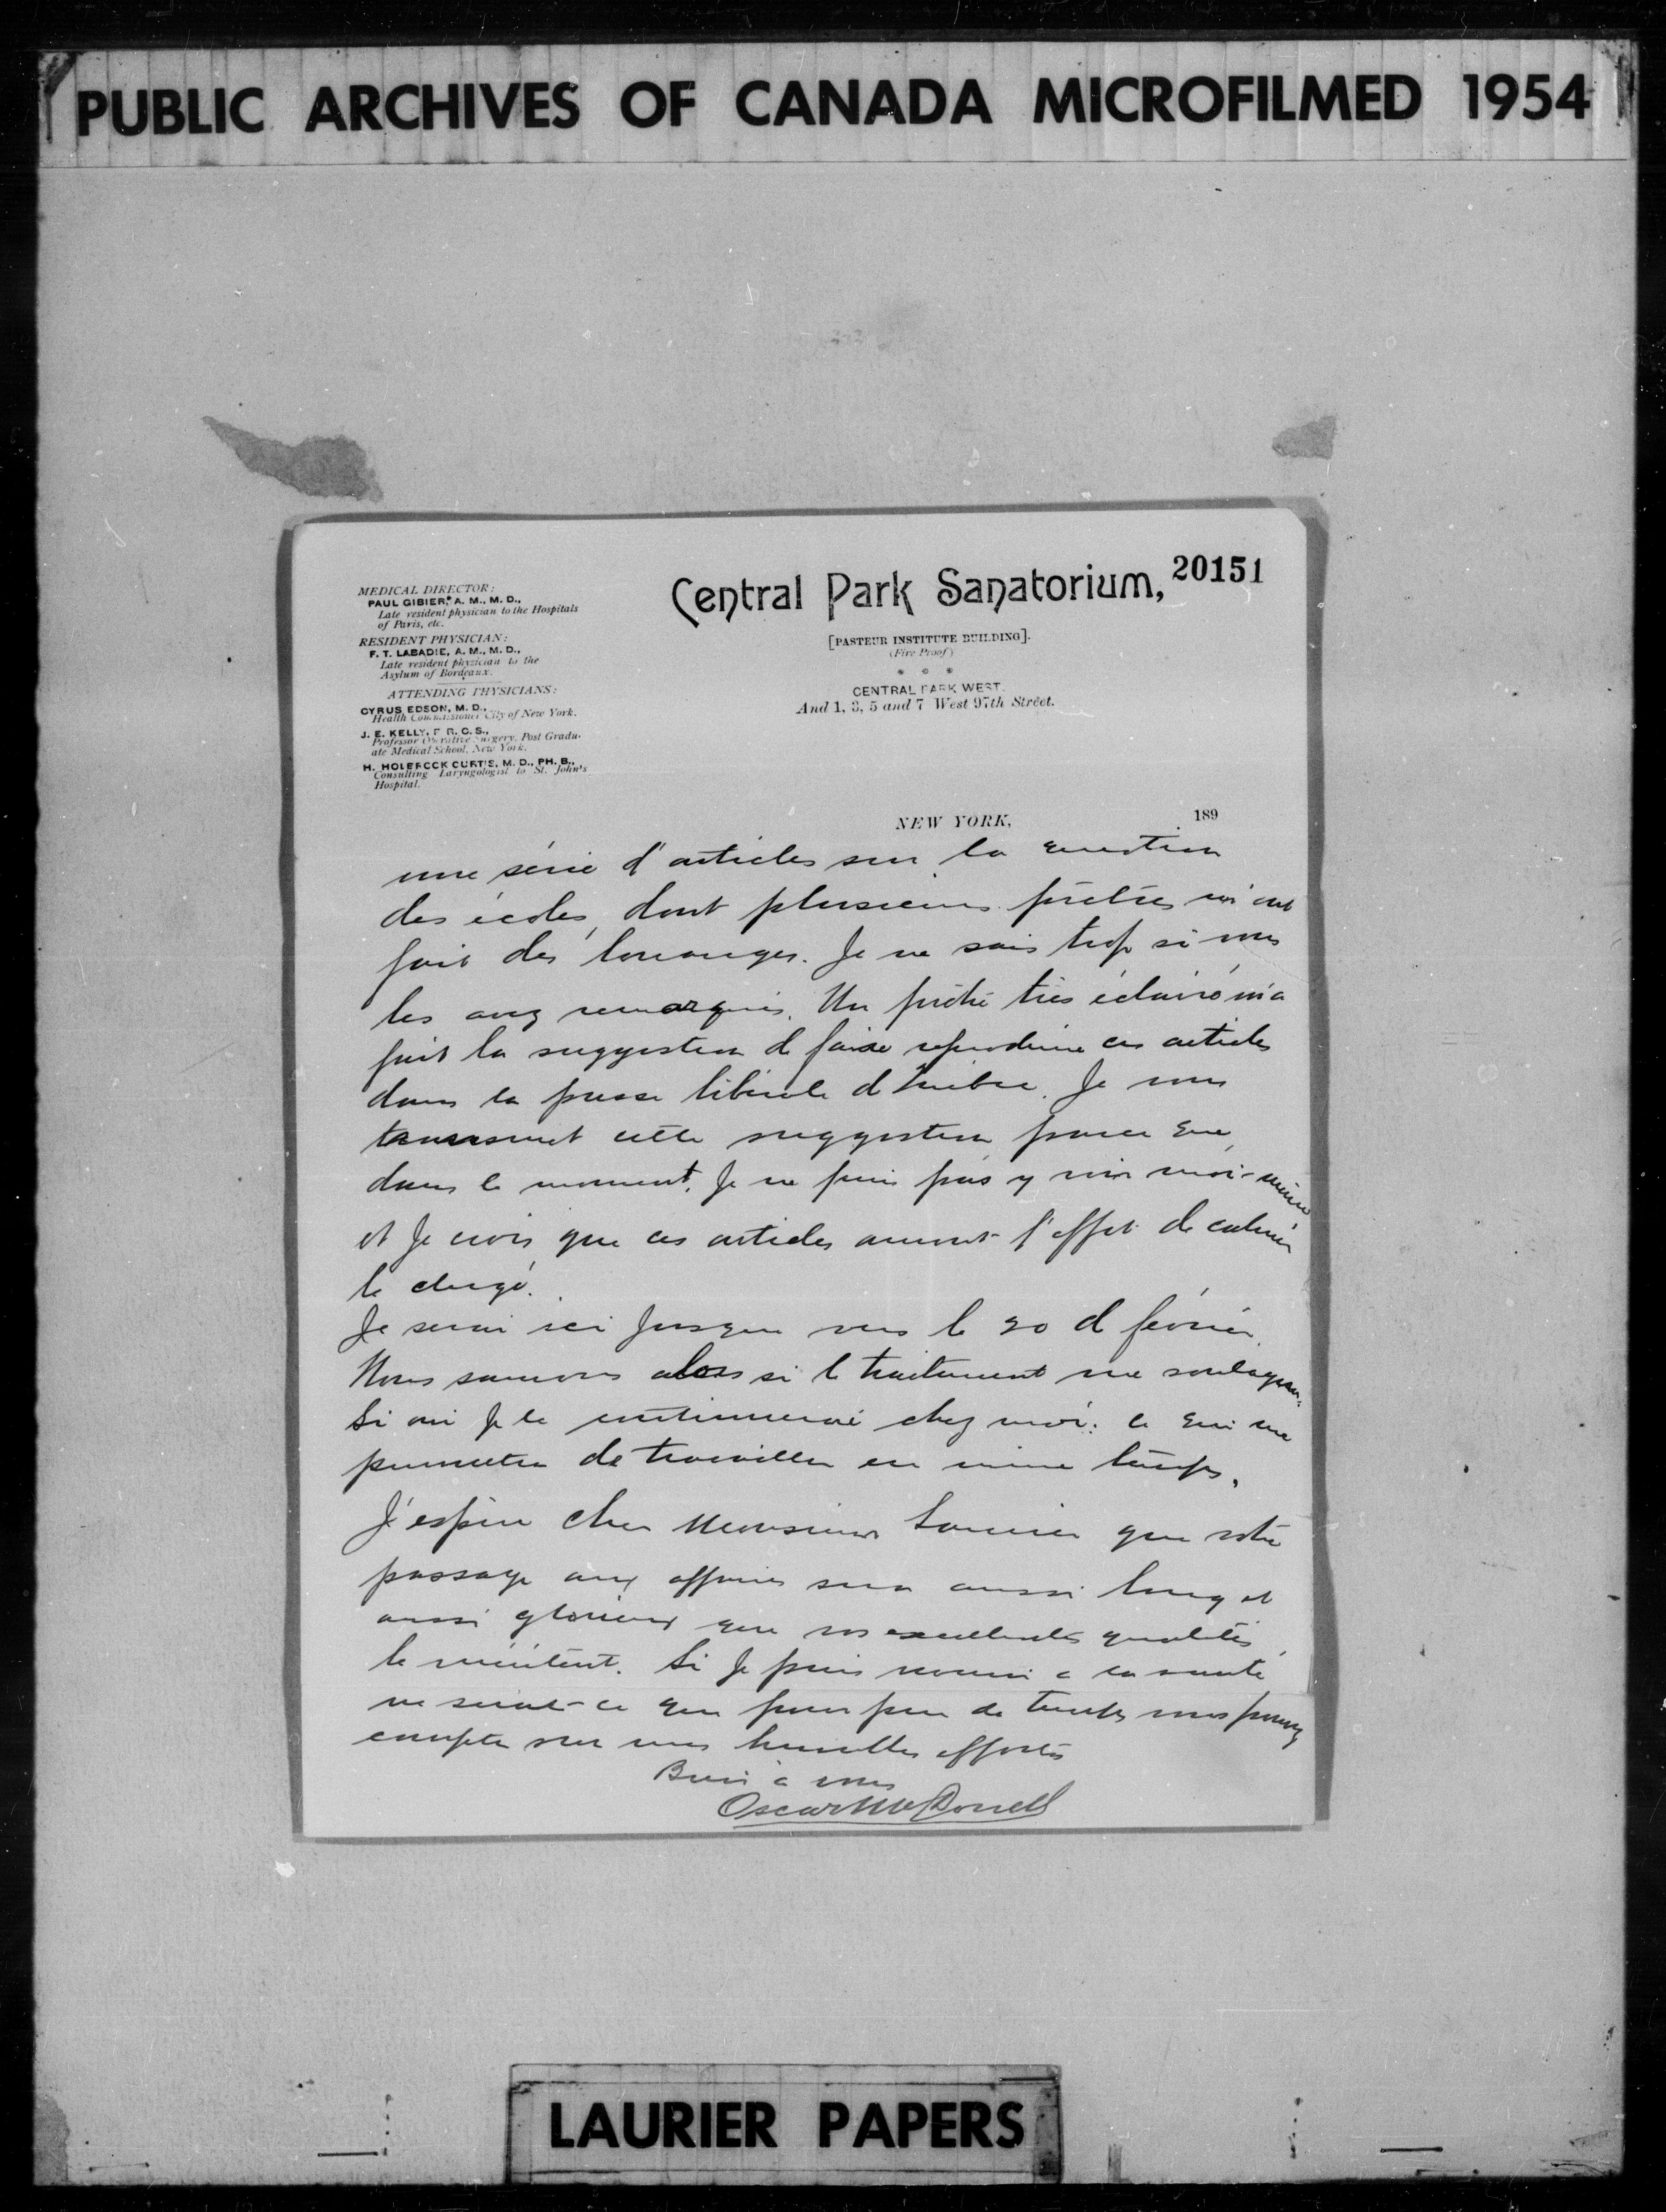 PUBLIC ARCHIVES OF CANADA MICROFILMED 1954
MEDICAL DIRECTOR:
PAUL GIBIER, A. M., M. D.,
Late resident physician to the Hospitals
of Paris, etc.
RESIDENT PHYSICIAN:
F. T. LABADIE, A. M., M. D.,
Late resident physician to the
Asylum of Bordeaux.
ATTENDING PHYSICIANS:
CYRUS EDSON, M. D.,
Health Commissioner City of New York.
J. E. KELLY, F. R. C. S.,
Professor Operative Surgery, Post Gradu-
ate Medical School, New York.
H. HOLBROOK CURTIS, M. D., PH. B.,
Consulting Laryngologist to St. John's
Hospital.
Central Park Sanatorium, 20151
[PASTEUR INSTITUTE BUILDING].
(Fire Proof)
CENTRAL PARK WEST.
And 1, 3, 5 and 7 West 97th Street.
NEW YORK, 189
une série d'articles sur la question
des écoles, dont plusieurs prêtres m'ont
fait des louanges. Je ne sais trop si vous
les avez remarqués. Un prêtre très éclairé m'a
fait la suggestion de faire reproduire ces articles
dans la presse libérale de Québec. Je vous
transmet cette suggestion parce que
dans le moment, je ne puis pas y voir moi-même
et je crois que ces articles auront l'effet de calmer
le clergé.
Je serai ici jusque vers le 20 de février.
Nous saurons alors si le traitement me soulagera.
Si oui je le continuerai chez moi: ce qui me
permettra de travailler en même temps.
J'espère cher Monsieur Laurier que votre
passage aux affaires sera aussi long et
aussi glorieux que vos excellentes qualités
le méritent. Si je puis revenir à la santé
ne serait-ce que pour peu de temps vous pouvez
compter sur mes humbles efforts
Bien à vous
Oscar McDonell
LAURIER PAPERS